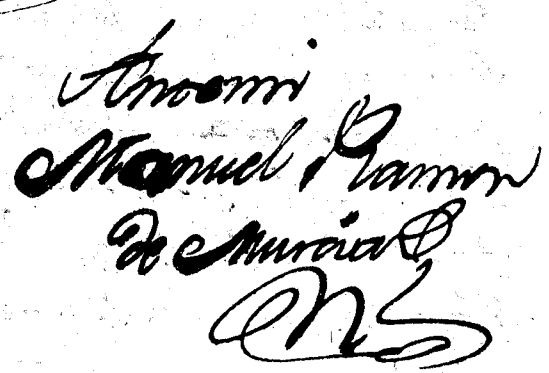 Anoemi
Manuel Ramon
de Murcia